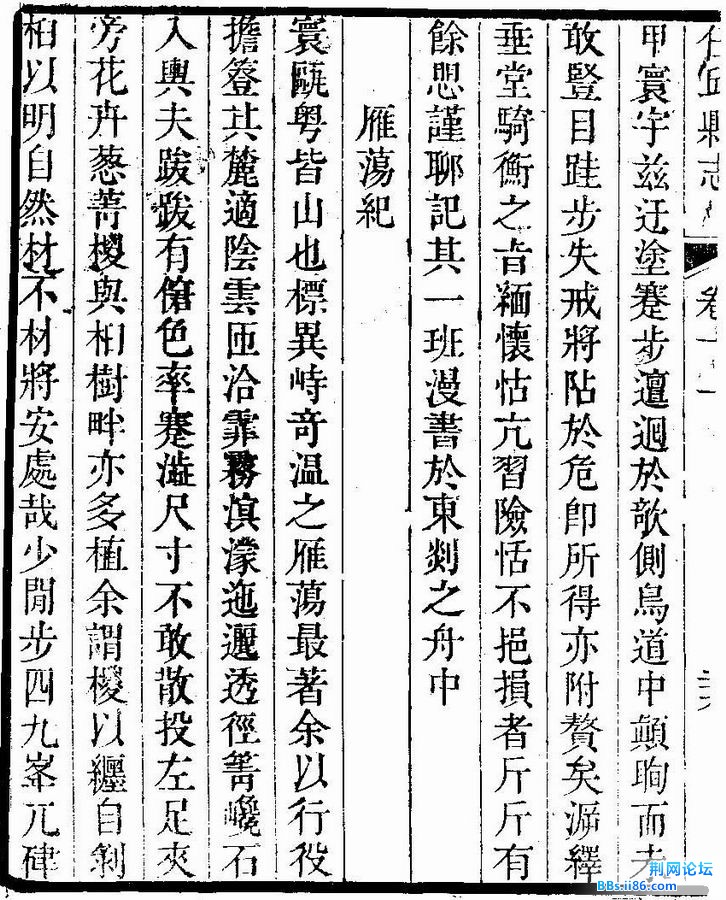 任丘縣志 卷十一
甲寰宇茲迂塗蹇步邅迴於欹側鳥道中顛眴而失
敢豎目跬步失戒將阽於危卽所得亦附贅矣漏繹
垂堂騎衡之旨緬懷怙亢習險恬不挹損者斤斤有
餘思謹聊記其一班漫書於東剡之舟中
雁蕩紀
寰甌粤皆山也標異峙奇温之雁蕩最著余以行役
擔簦其麓適陰雲匝洽霏霧滇濛迤邐透徑箐巉石
入輿夫跋跋有傖色率蹇澁尺寸不敢散投左足夾
旁花卉葱菁椶與桕樹畔亦多植余謂椶以纒自剝
桕以明自然材不材將安處哉少閒步四九峯兀硉
荆网论坛
BBs.ii86.com